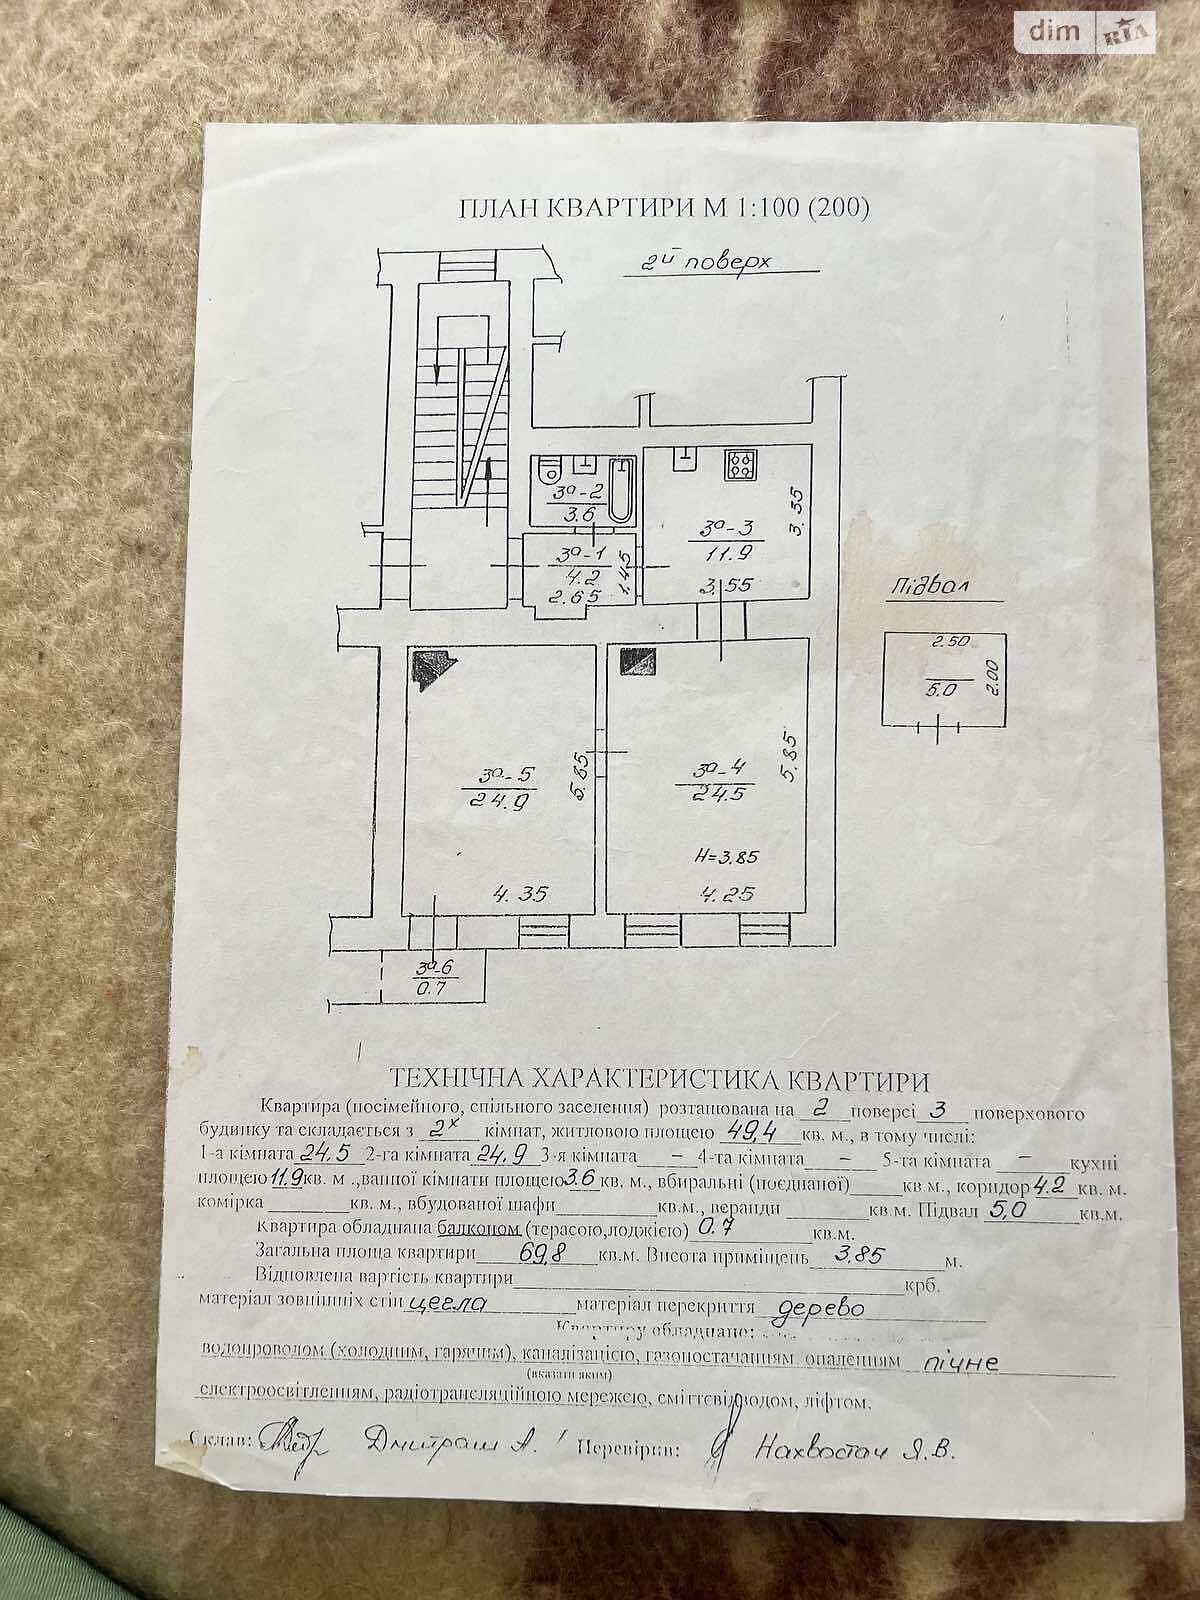 dim RIA
ПЛАН КВАРТИРИ М 1:100 (200)
2й поверх
3а-2
3.6
3а-3
11.9
3.55
3.55
3а-1
4.2
2.65
1.45
Підвал
2.50
5.0
2.00
3а-5
24.9
5.85
4.35
3а-4
24.5
5.85
H=3.85
4.25
3а-6
0.7
ТЕХНІЧНА ХАРАКТЕРИСТИКА КВАРТИРИ
Квартира (посімейного, спільного заселення) розташована на 2 поверсі 3 поверхового
будинку та складається з 2х кімнат, житловою площею 49,4 кв. м., в тому числі:
1-а кімната 24,5 2-га кімната 24,9 3-я кімната – 4-та кімната – 5-та кімната – кухні
площею 11.9 кв. м .,ванної кімнати площею 3.6 кв. м., вбиральні (поєднаної) кв.м., коридор 4.2 кв. м.
комірка кв. м., вбудованої шафи кв.м., веранди кв.м. Підвал 5,0 кв.м.
Квартира обладнана балконом (терасою,лоджією) 0.7 кв.м.
Загальна площа квартири 69,8 кв.м. Висота приміщень 3,85 м.
Відновлена вартість квартири крб.
матеріал зовнішніх стін цегла матеріал перекриття дерево
Квартиру обладнано:
водопроводом (холодним, гарячим), каналізацією, газопостачанням, опаленням пічне
(вказати яким)
електроосвітленням, радіотрансляційною мережею, сміттєвідводом, ліфтом.
Склав: Дмитраш А. Перевірив: Нахвостач Я.В.